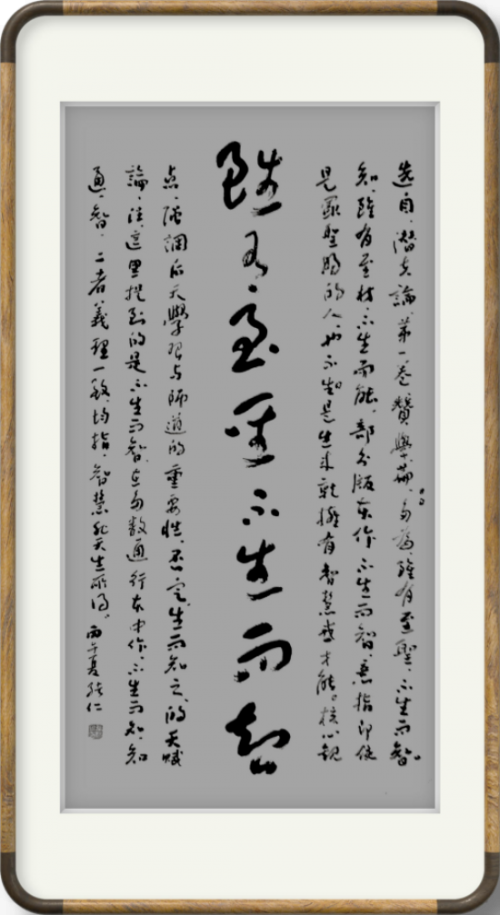 選自、潜夫論、第一卷贊學篇、句為、雖有至聖、不生而智。
知、雖有至材、不生而能、部分版本作、不生而智、意指即使
是最聖的人、也不是生来就擁有智慧或才能。核心觀
雖有至聖不生而智
点、強調后天學習与師道的重要性、否定生而知之的天賦
論、注、這里提到的是不生而智、在多数通行本中作、不生而知、知
通、智、二者義理一致、均指、智慧非天生所得。丙午夏 仁